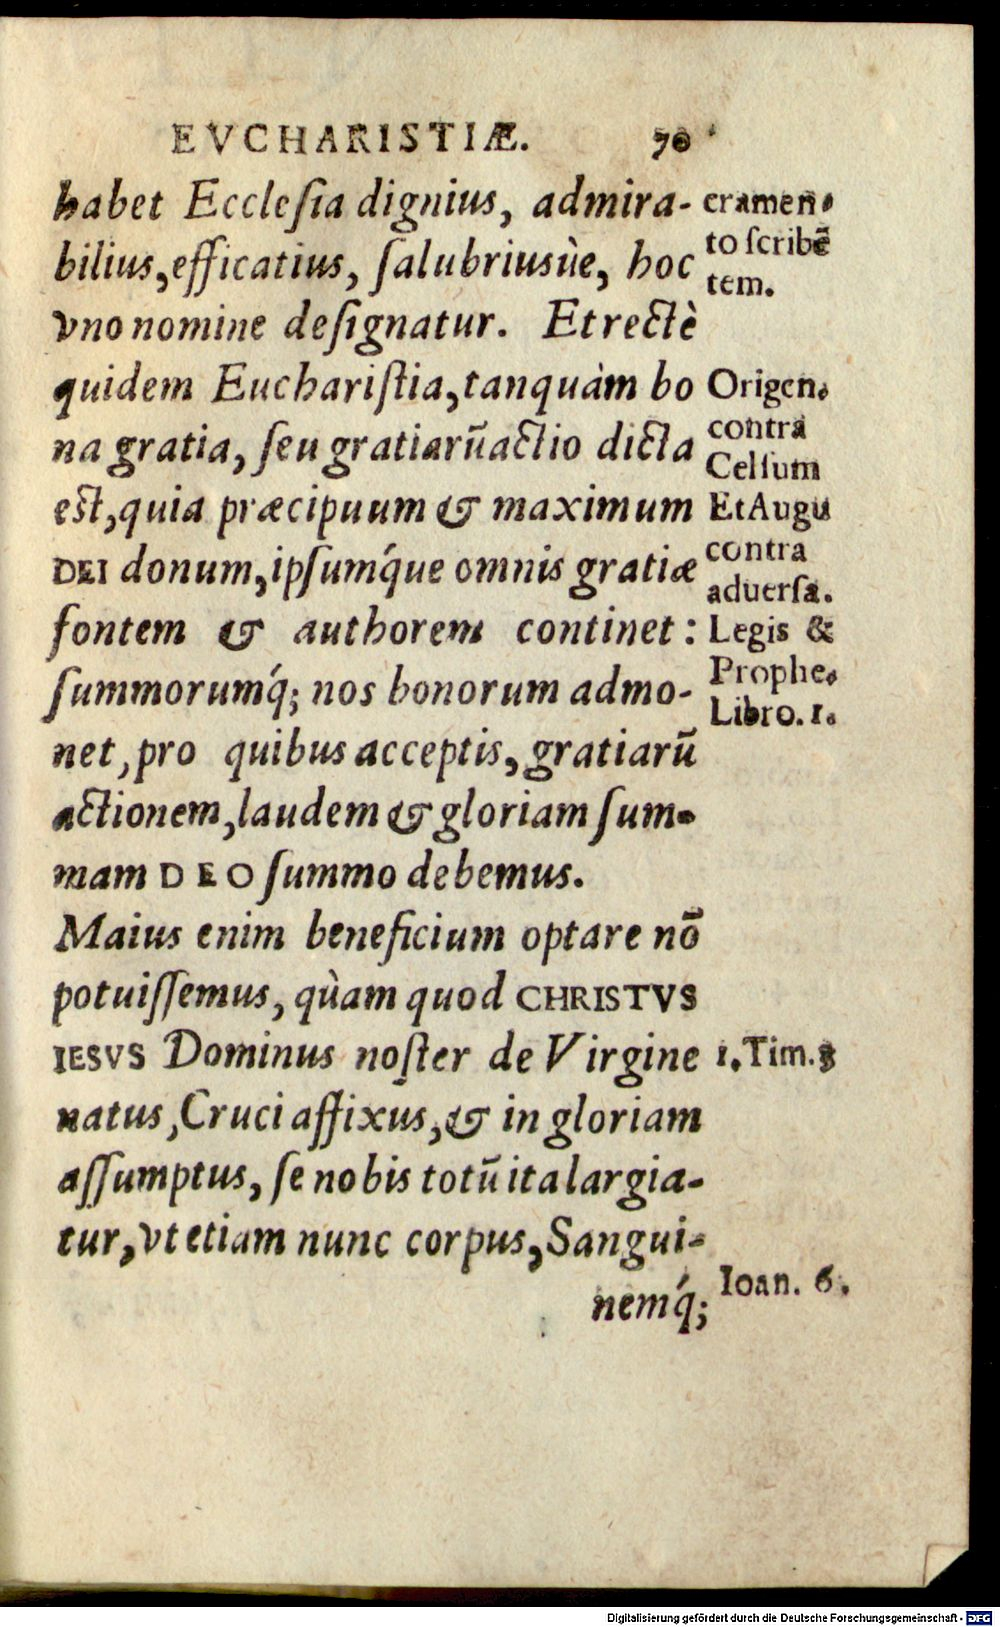 EVCHARISTIÆ. 70
habet Ecclesia dignius, admira-
bilius, efficatius, salubriusùe, hoc
vno nomine designatur. Et rectè
quidem Eucharistia, tanquàm bo
na gratia, seu gratiarũactio dicta
est, quia præcipuum & maximum
DEI donum, ipsumq́ue omnis gratiæ
fontem & authorem continet:
summorumq́; nos bonorum admo-
net, pro quibus acceptis, gratiarũ
actionem, laudem & gloriam sum-
mam DEO summo debemus.
Maius enim beneficium optare nõ
potuissemus, quàm quod CHRISTVS
IESVS Dominus noster de Virgine
natus, Cruci affixus, & in gloriam
assumptus, se nobis totũ ita largia-
tur, vt etiam nunc corpus, Sangui-
nemq́;
cramen-
to scribẽ
tem.
Origen.
contra
Celsum
Et Augu
contra
aduersa.
Legis &
Prophe.
Libro. 1.
1. Tim. 3
Ioan. 6.
Digitalisierung gefördert durch die Deutsche Forschungsgemeinschaft - DFG